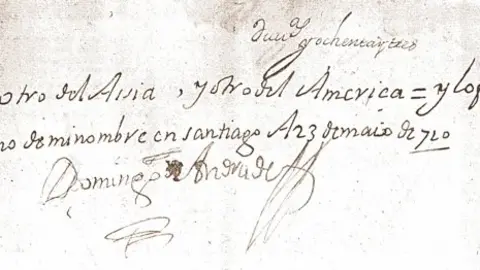 y ochenta y tres
otro del Assia, y otro del America = y lo
no de mi nombre en santiago A 23 de maio de 710
Domingo de Andrade